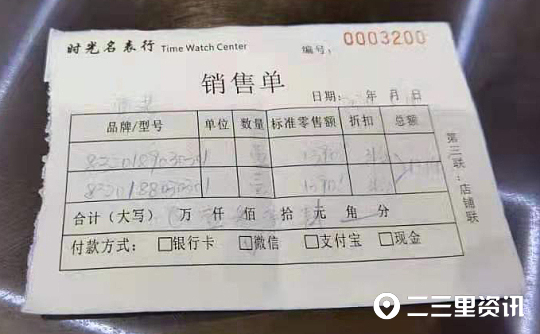 时光名表行 Time Watch Center 编号: 0003200
销售单
日期: 年 月 日
品牌/型号 单位 数量 标准零售额 折扣 总额
合计(大写) 万 仟 佰 拾 元 角 分
付款方式: □银行卡 □微信 □支付宝 □现金
第三联:店铺联
二三里资讯